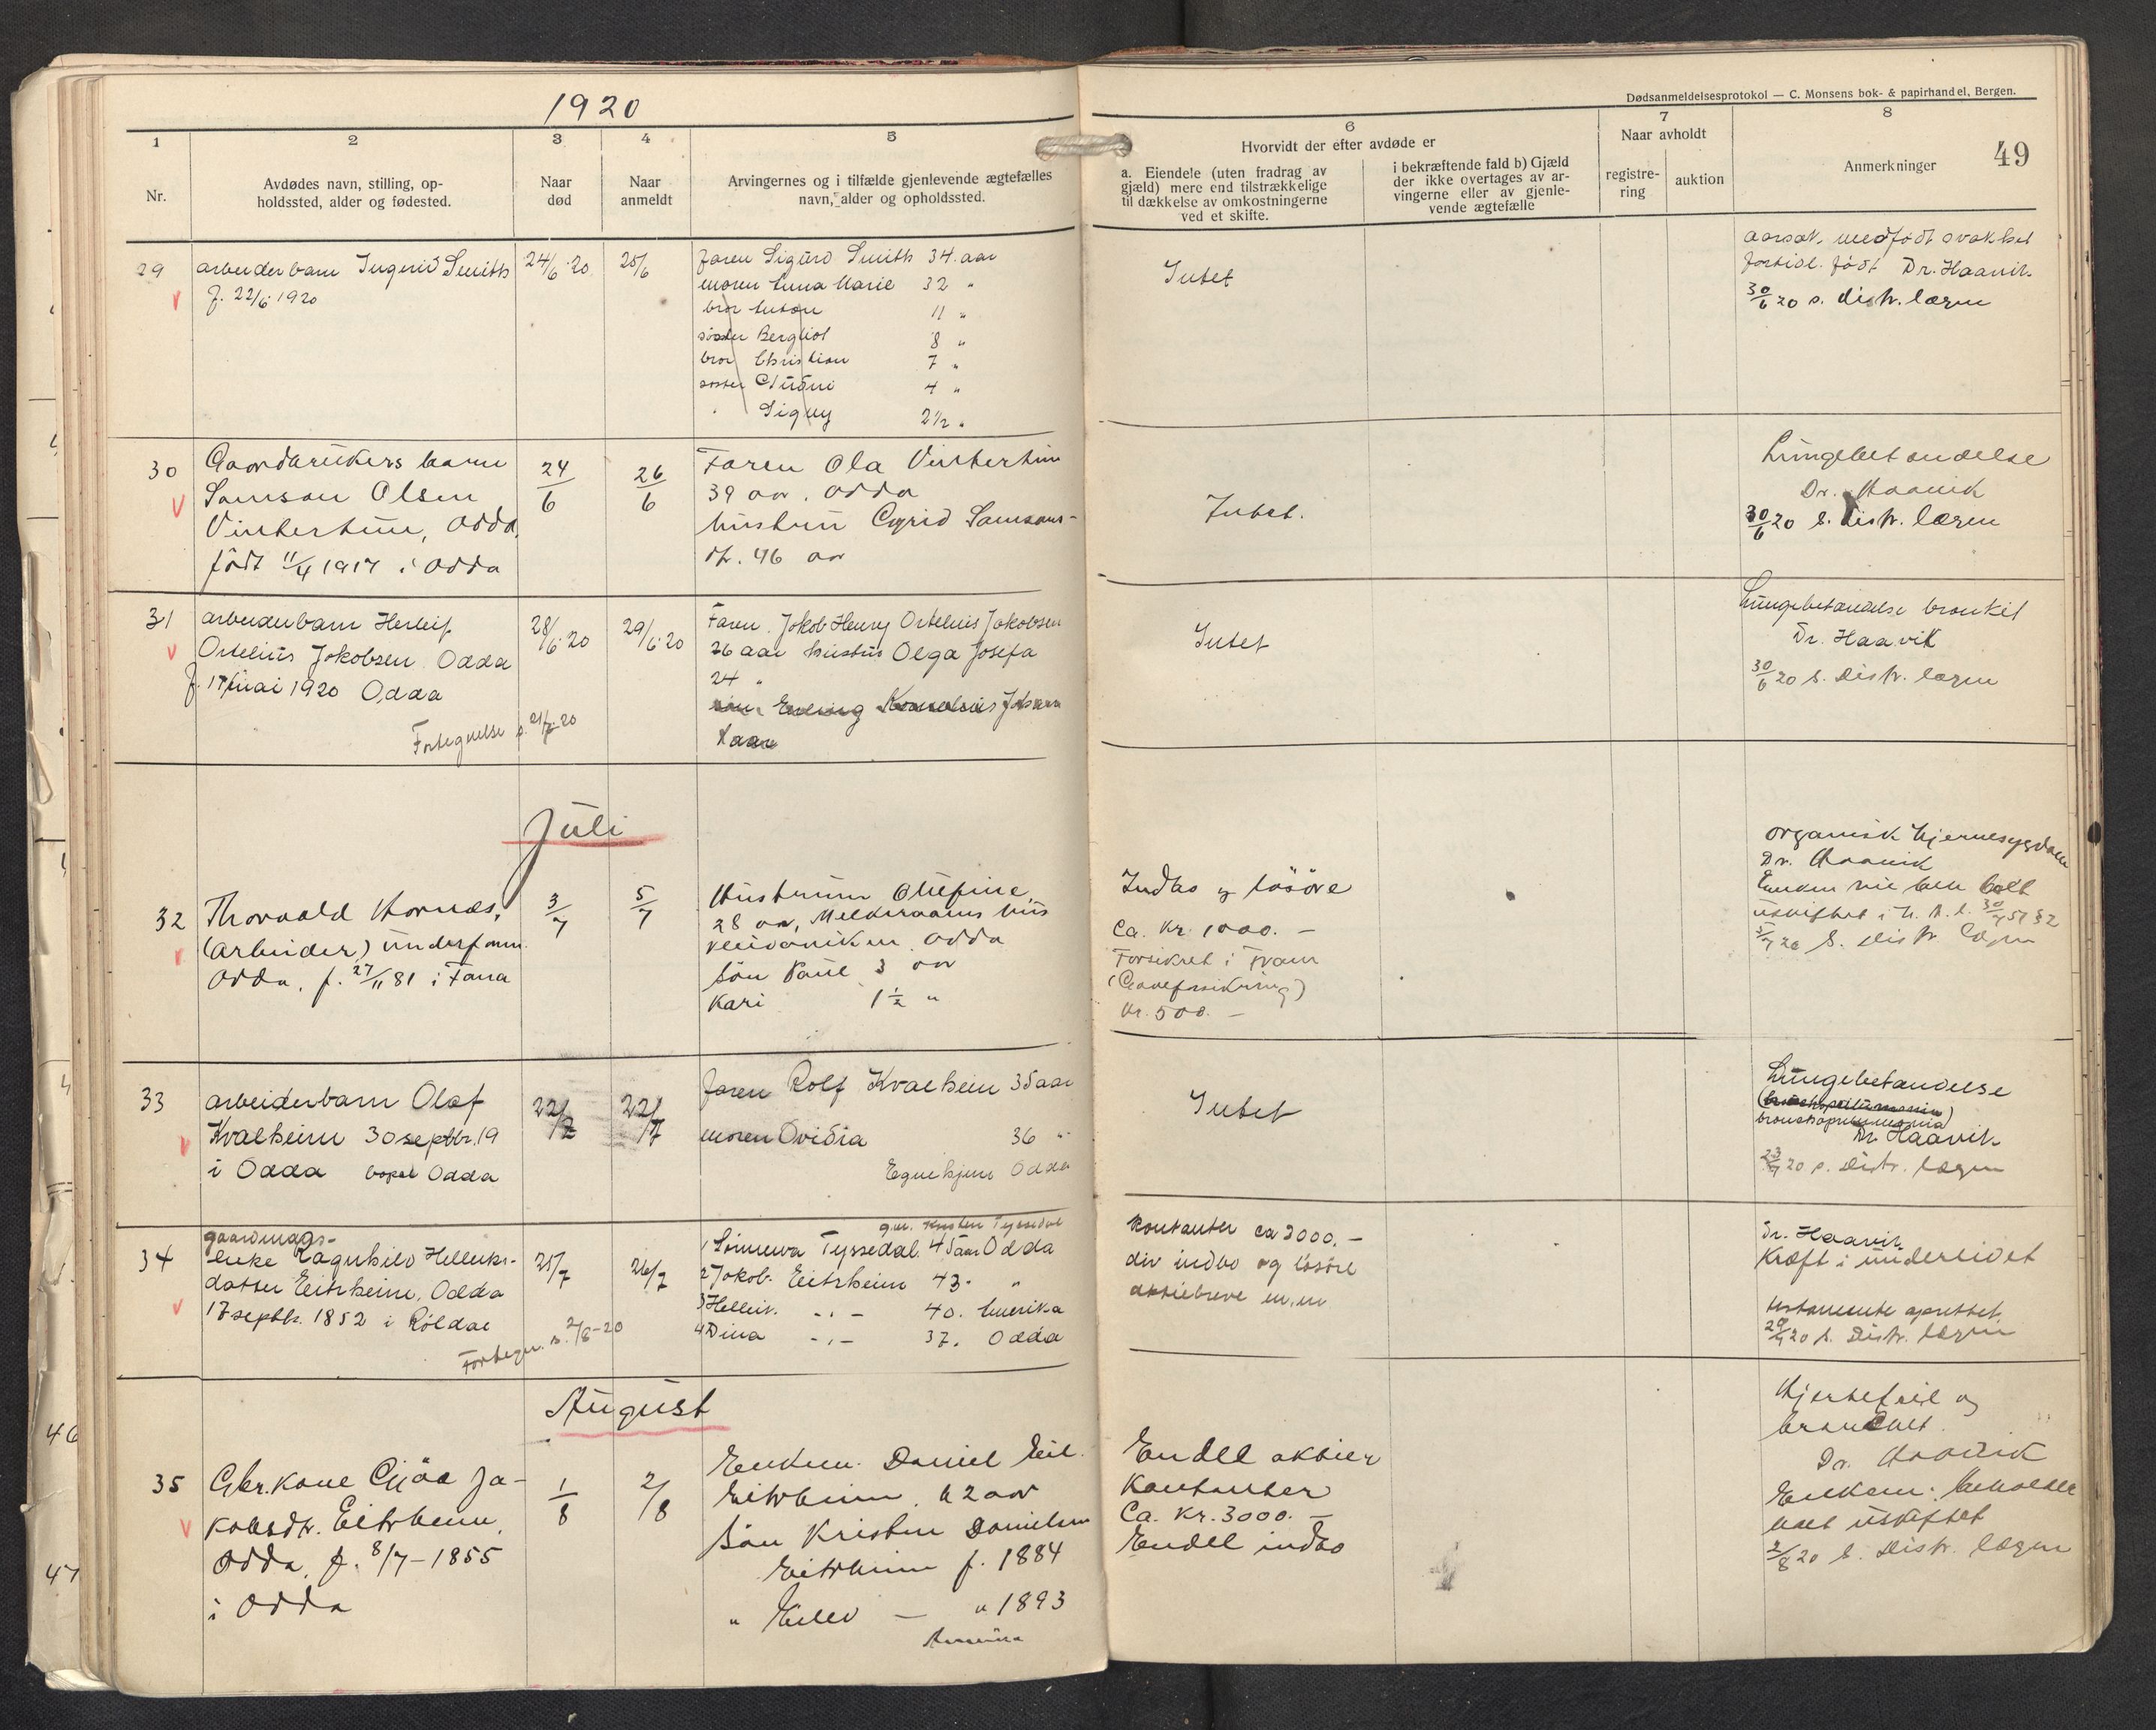 1920
Dødsanmeldelsesprotokol — C. Monsens bok- & papirhandel, Bergen.
49
1
Nr.
2
Avdødes navn, stilling, op-
holdssted, alder og fødested.
3
Naar
død
4
Naar
anmeldt
5
Arvingernes og i tilfælde gjenlevende ægtefælles
navn, alder og opholdssted.
6
Hvorvidt der efter avdøde er
a. Eiendele (uten fradrag av
gjæld) mere end tilstrækkelige
til dækkelse av omkostningerne
ved et skifte.
i bekræftende fald b) Gjæld
der ikke overtages av ar-
vingerne eller av gjenle-
vende ægtefælle
7
Naar avholdt
registre-
ring
auktion
8
Anmerkninger
29
arbeiderbarn Ingerid Smith
f. 22/6 1920
24/6 20
25/6
faren Sigurd Smith 34 aar
moren Anna Marie 32 "
bror Anton 11 "
søster Bergliot 8 "
bror Christian 7 "
søster 4 "
" Signy 2 1/2 "
Intet
aarsak. medfødt svakhet
fortidl. født Dr. Haavik
30/6 20 s. distr. lægen
30
Gaardbrukers barn
Samson Olsen
Vintertun, Odda,
født 11/4 1917 i Odda
24/6
26/6
Faren Ola Vintertun
39 aar, Odda
hustru Sygrid Samsons-
dt. 46 aar
Intet.
Lungebetændelse
Dr. Haavik
30/6 20 s. distr. lægen
31
arbeiderbarn Herleif
Ortelius Jakobsen Odda
f. 17 mai 1920 Odda
Fortegnelse s. 21/7-20
28/6 20
29/6 20
Faren Jakob Henry Ortelius Jakobsen
26 aar hustru Olga Josefa
24 "
Intet
Lungebetændelse bronkit
Dr. Haavik
30/6 20 s. distr. lægen
Juli
32
Thorvald Hornæs,
(arbeider)
Odda, f. 27/11 81 i Fana
3/7
5/7
Hustruen Olufine,
28 aar,
Odda
søn Paul 3 aar
Kari 1 1/2 "
Indbo og løsøre
ca. kr. 1000. –
Forsikret i Fram
kr. 500. –
organisk hjernesygdom
Dr. Haavik
5/7 20 s. distr. lægen
33
arbeiderbarn Olaf
Kvalheim 30 septbr. 19
i Odda bopel Odda
22/7
22/7
faren Rolf Kvalheim 35 aar
moren Ovidia 36 "
Egnehjem Odda
Intet
Lungebetændelse
bronchopneumonia
Dr. Haavik
23/7 20 s. distr. lægen
34
gaardmands-
enke Ragnhild Helleiks-
datter Eitrheim, Odda
17 septbr. 1852 i Røldal
Fortegn. s. 2/8-20
25/7
26/7
g.m. Kristen Tyssedal
1 Sønneva Tyssedal. 45 aar Odda
2 Jakob Eitrheim 43. "
3 Helleik. -"- 40. Amerika
4 Dina -"- 37. Odda
Kontanter ca 3000. –
div indbo og løsøre
aktiebreve m.m
Dr. Haavik
Kræft i underlivet
testamente oprettet.
29/7 20 s. distr. lægen
August
35
Gbr. kone Gjøa Ja-
kobsdtr. Eitrheim,
Odda, f. 8/7-1855
i Odda
1/8
2/8
Enkem. Daniel Eil.
Eitrheim, 62 aar
søn Kristen Danielsen
Eitrheim f. 1884
" Eilev — " 1893
Amerika
Endel aktier
Kontanter
Ca. Kr. 3000. –
Endel indbo
Hjertefeil og
Dr. Haavik
Enkem. beholder
boet uskiftet
2/8 20 s. distr. lægen
46
47